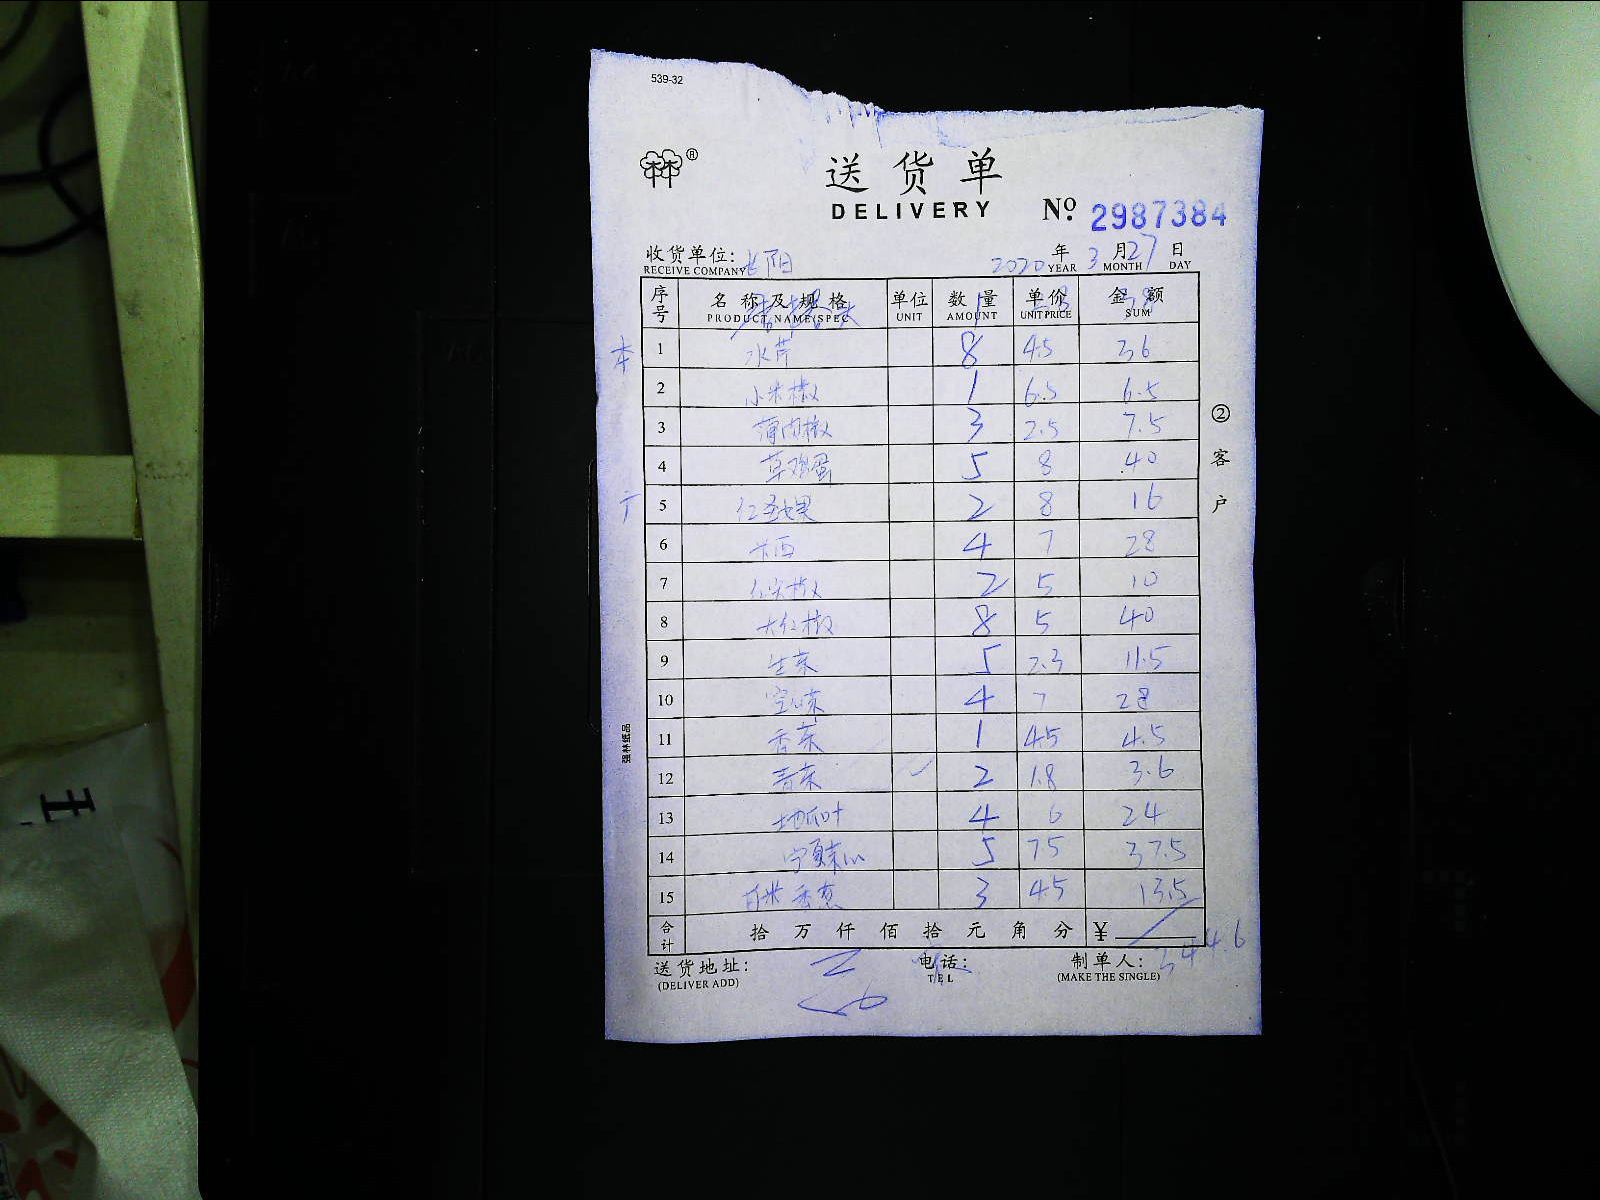 539-32
送货单
DELIVERY № 2987384
收货单位: 长阳 2020 年 3 月 27 日
RECEIVE COMPANY YEAR MONTH DAY
序号 名称及规格 单位 数量 单价 金额
PRODUCT NAME/SPEC UNIT AMOUNT UNIT PRICE SUM
1 水芹 8 4.5 36
2 小米椒 1 6.5 6.5
3 薄肉椒 3 2.5 7.5
4 草鸡蛋 5 8 40
5 红圣女果 2 8 16
6 西 4 7 28
7 红尖椒 2 5 10
8 大红椒 8 5 40
9 生菜 5 2.3 11.5
10 空心菜 4 7 28
11 香菜 1 4.5 4.5
12 青菜 2 1.8 3.6
13 地瓜叶 4 6 24
14 宁夏菜心 5 7.5 37.5
15 香葱 3 4.5 13.5
合计 拾 万 仟 佰 拾 元 角 分 ¥
344.6
送货地址: 电话: 制单人:
(DELIVER ADD) TEL (MAKE THE SINGLE)
② 客户
强林纸品